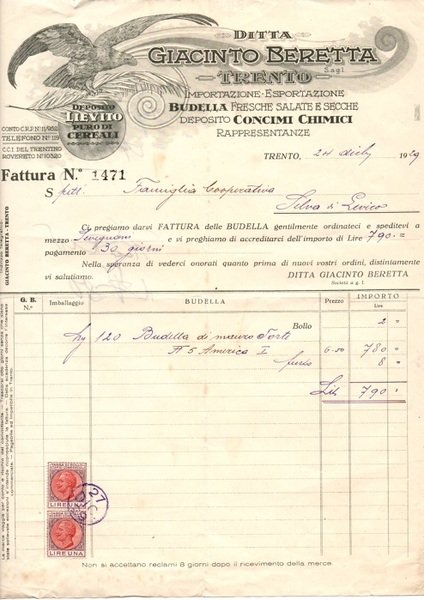 DITTA
GIACINTO BERETTA
S.a g.l.
TRENTO
IMPORTAZIONE - ESPORTAZIONE
BUDELLA FRESCHE SALATE E SECCHE
DEPOSITO CONCIMI CHIMICI
RAPPRESENTANZE
DEPOSITO
LIEVITO
PURO DI
CEREALI
CONTO C.R.P. N° 11/952
TELEFONO N° 119
C.C.I. DEL TRENTINO
ROVERETO N° 10320
TRENTO, 24 1929
Fattura N.° 1471
Spett. Famiglia Cooperativa
Selva di Levico
Ci pregiamo darvi FATTURA delle BUDELLA gentilmente ordinateci e speditevi a
mezzo e vi preghiamo di accreditarci dell'importo di Lire 790.=
pagamento 30 giorni
Nella speranza di vederci onorati quanto prima di nuovi vostri ordini, distintamente
vi salutiamo. DITTA GIACINTO BERETTA
Società a g. l.
GIACINTO BERETTA - TRENTO
G. B. N.° Imballaggio BUDELLA Prezzo IMPORTO Lire
Bollo 2 =
120 Budella di Forti
5 America I 6.50 780 =
8 =
Lit 790 =
TASSA DI BOLLO
LIRE UNA
27
DIC
LIRE UNA
Non si accettano reclami 8 giorni dopo il ricevimento della merce.